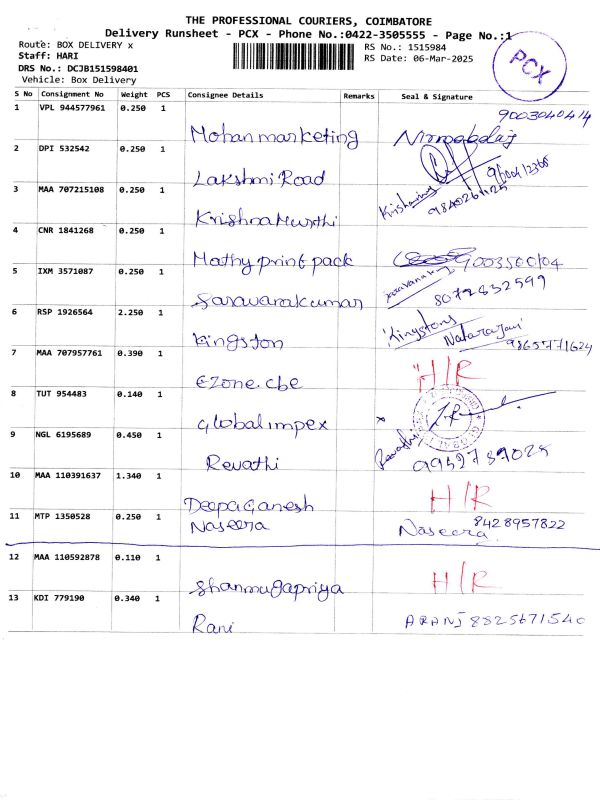 THE PROFESSIONAL COURIERS, COIMBATORE
Delivery Runsheet - PCX - Phone No.:0422-3505555 - Page No.:1
Route: BOX DELIVERY x
RS No.: 1515984
Staff: HARI
RS Date: 06-Mar-2025
DRS No.: DCJB151598401
Vehicle: Box Delivery
PCX
S No Consignment No Weight PCS Consignee Details Remarks Seal & Signature
1 VPL 944577961 0.250 1 Mohan marketing 9003040414
2 DPI 532542 0.250 1 Lakshmi Road
3 MAA 707215108 0.250 1 KrishnaMurthi 9840261125
4 CNR 1841268 0.250 1 Mathy print pack
5 IXM 3571087 0.250 1 Saravanakumar 8072832599
6 RSP 1926564 2.250 1 Kingston Natarajan 9865771624
7 MAA 707957761 0.390 1 Ezone.cbe H/R
8 TUT 954483 0.140 1 Global impex
9 NGL 6195689 0.450 1 Revathi Revathi 9952739025
10 MAA 110391637 1.340 1 Deepa Ganesh H/R
11 MTP 1350528 0.250 1 Naseera Naseera 8428957822
12 MAA 110592878 0.110 1 Shanmugapriya H/R
13 KDI 779190 0.340 1 Rani 8825671540